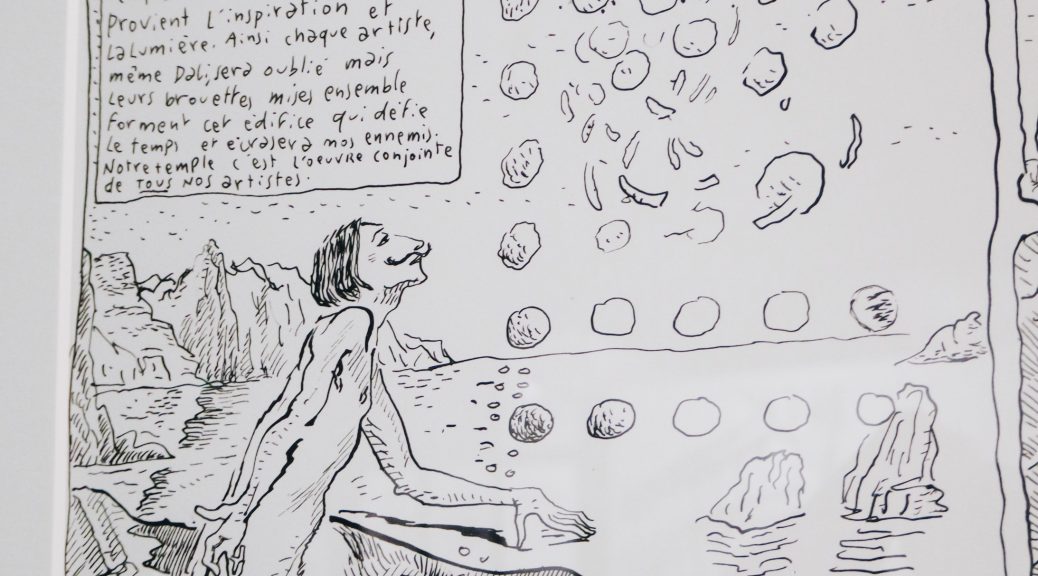 Provient l'inspiration et
la lumière. Ainsi chaque artiste,
même Dali, sera oublié mais
leurs brouettes, mises ensemble
forment cet édifice qui défie
le temps et écrasera nos ennemis.
Notre temple c'est l'oeuvre conjointe
de tous nos artistes.